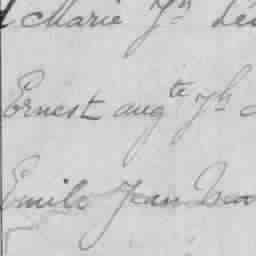 Marie Jh
Ernest augte Jh
Emile Jean